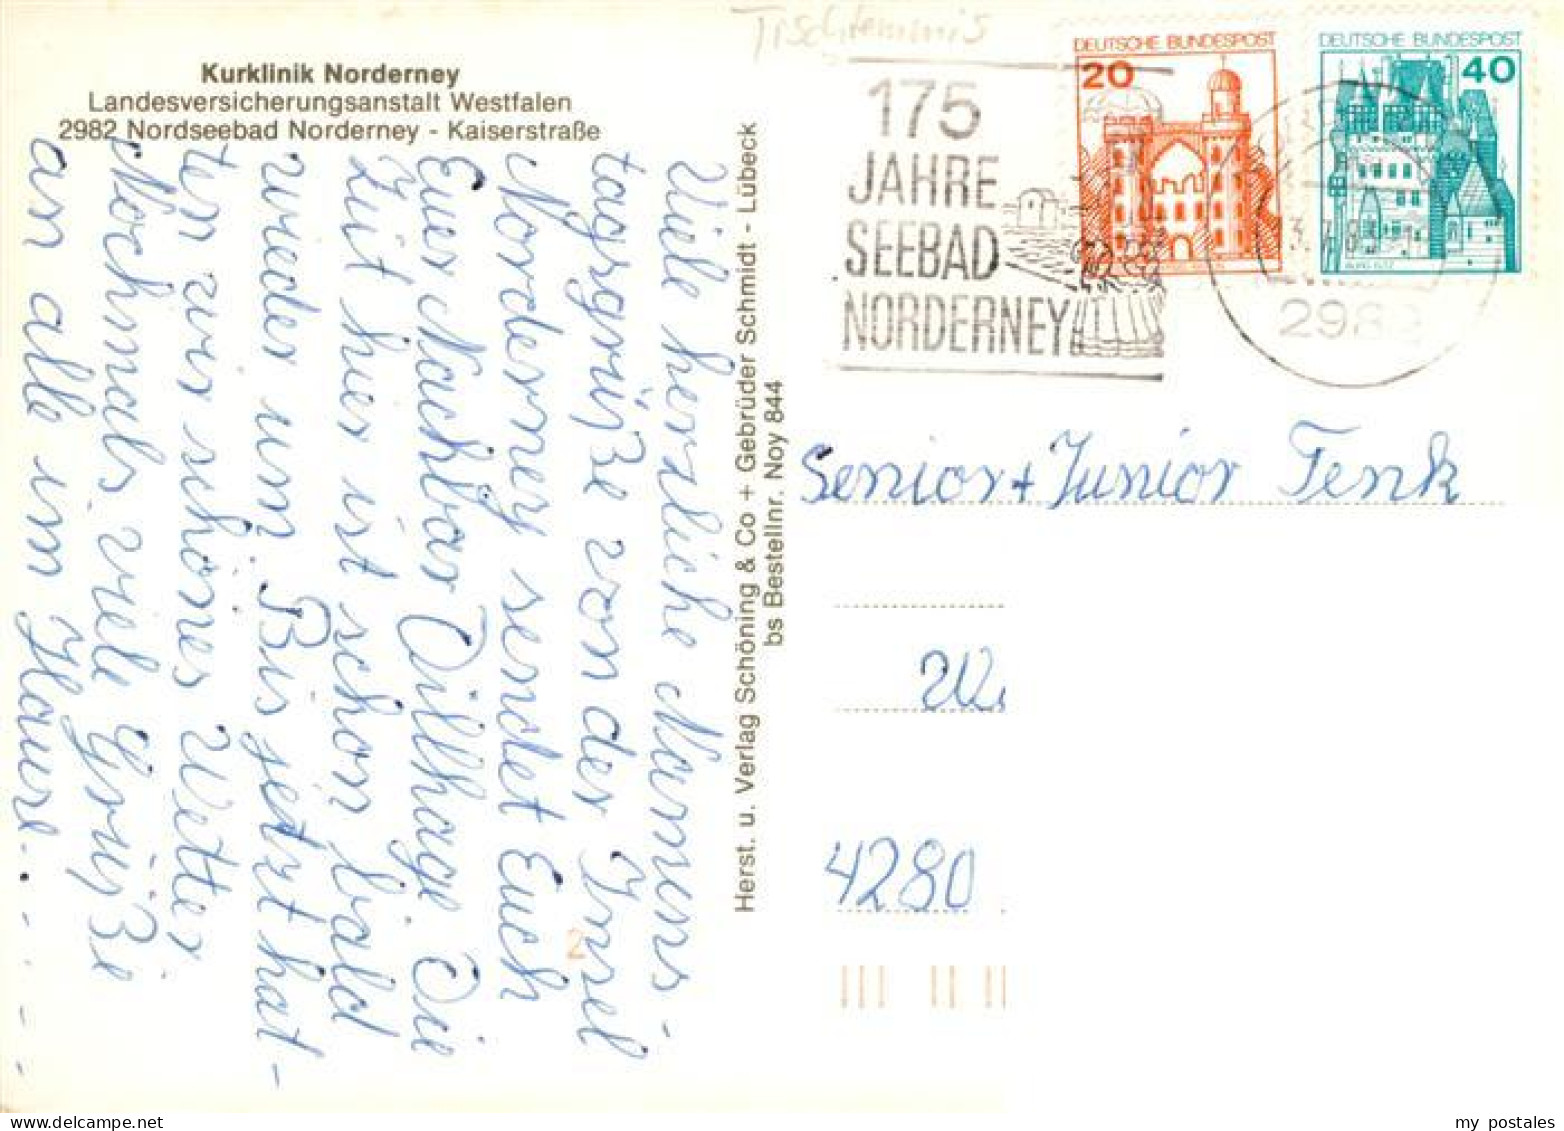 Tischtennis
Kurklinik Norderney
Landesversicherungsanstalt Westfalen
2982 Nordseebad Norderney - Kaiserstraße
Viele herzliche Namens-
tagsgrüße von der Insel
Norderney sendet Euch
Euer Nachbar Dillhage. Die
Zeit hier ist schon bald
wieder um. Bis jetzt hat-
ten wir schönes Wetter
Nochmals viele Grüße
an alle im Hause. . . . . .
Herst. u. Verlag Schöning & Co + Gebrüder Schmidt - Lübeck
bs Bestellnr. Noy 844
2
175
JAHRE
SEEBAD
NORDERNEY
DEUTSCHE BUNDESPOST
20
DEUTSCHE BUNDESPOST
40
2982
Senior + Junior Tenk
4280
my postales